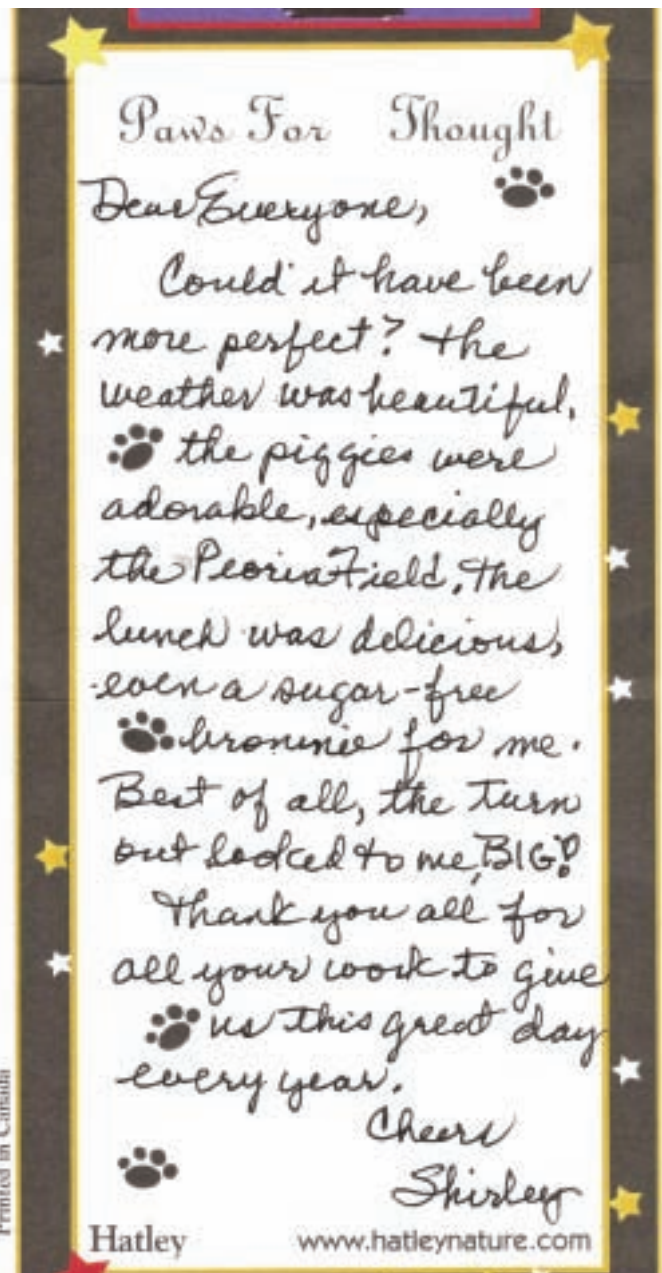 Paws For Thought
Dear Everyone,
Could it have been
more perfect? The
weather was beautiful,
the piggies were
adorable, especially
the Peoria Field. The
lunch was delicious,
even a sugar-free
brownie for me.
Best of all, the turn
out looked to me, BIG!
Thank you all for
all your work to give
us this great day
every year.
Cheers
Shirley
Hatley www.hatleynature.com
Printed in Canada